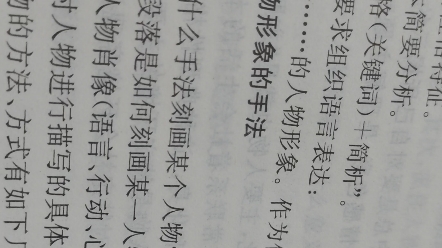 特征。
简要分析。
格(关键词)＋简析”。
要求组织语言表达：
……的人物形象。作为
物形象的手法
什么手法刻画某个人物
段落是如何刻画某一人
人物肖像(语言、行动、心
对人物进行描写的具体
物的方法、方式有如下几